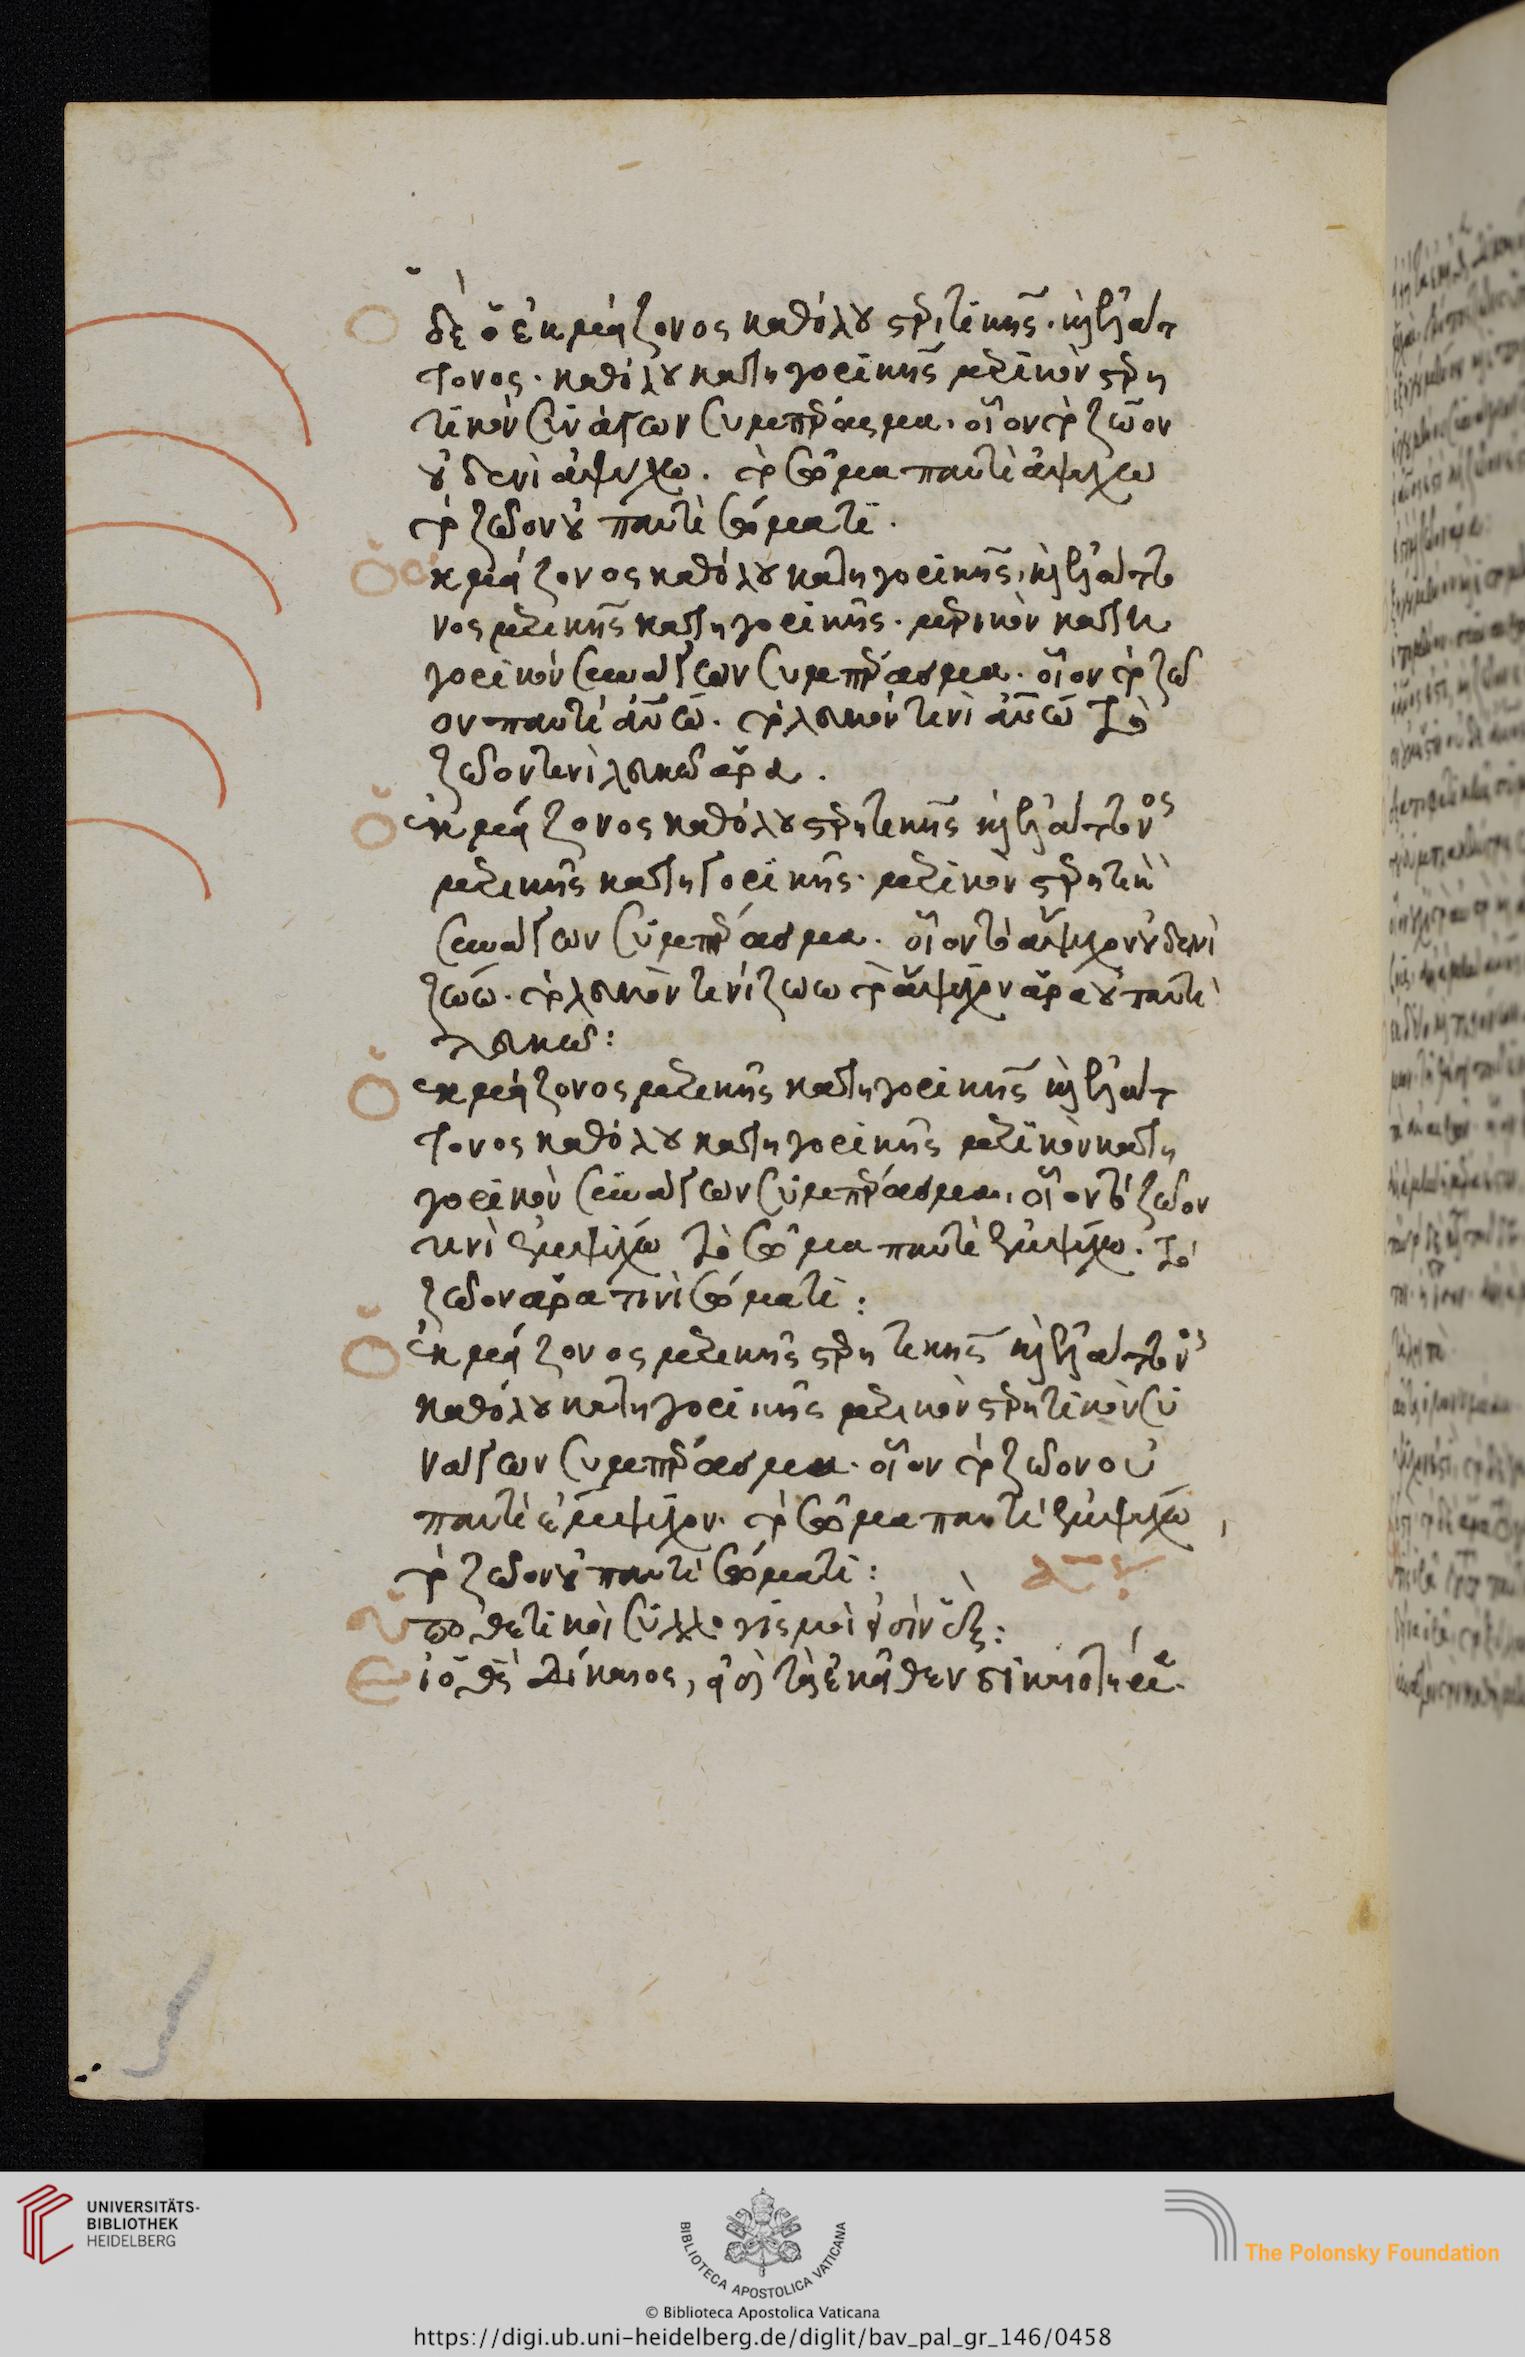 δὲ ὁ ἐκ μείζονος καθόλου στερητικῆς. καὶ ἐλάτ
τονος. καθόλου κατηγορικῆς μερικὸν στερη
τικὸν συνάγων συμπέρασμα. οἷον τὸ ζῶον
οὐδενὶ ἀψύχω. τὸ σῶμα παντὶ ἀψύχω
τὸ ζῶον οὐ παντὶ σώματι.
Ὁ ἐκ μείζονος καθόλου κατηγορικῆς, καὶ ἐλάττο
νος μερικῆς κατηγορικῆς. μερικὸν κατη
γορικὸν συνάγων συμπέρασμα. οἷον τὸ ζῶ
ον παντὶ ἀνω. τὸ λευκὸν τινὶ ἀνω τὸ
ζῶον τινὶ λευκῶ ἄρα.
Ὁ ἐκ μείζονος καθόλου στερητικῆς καὶ ἐλάττονος
μερικῆς κατηγορικῆς. μερικὸν στερητικὸν
συνάγων συμπέρασμα. οἷον τὸ ἄψυχον οὐδενὶ
ζώω. τὸ λευκὸν τινὶ ζώω τὸ ἄψυχον ἄρα οὐ παντὶ
λευκῶ:
Ὁ ἐκ μείζονος μερικῆς κατηγορικῆς καὶ ἐλάτ
τονος καθόλου κατηγορικῆς μερικὸν κατη
γορικὸν συνάγων συμπέρασμα, οἷον τὸ ζῶον
τινὶ ἐμψύχω τὸ σῶμα παντὶ ἐμψύχω. τὸ
ζῶον ἄρα τινὶ σώματι:
Ὁ ἐκ μείζονος μερικῆς στερητικῆς καὶ ἐλάττονος
καθόλου κατηγορικῆς μερικὸν στερητικὸν συ
νάγων συμπέρασμα. οἷον τὸ ζῶον οὐ
παντὶ ἔμψυχον. τὸ σῶμα παντὶ ἐμψύχω,
τὸ ζῶον οὐ παντὶ σώματι:
Ὑποθετικοὶ συλλογισμοὶ εἰσὶν ἕξ:
Εἰ ὁ θς δίκαιος,
UNIVERSITÄTS-
BIBLIOTHEK
HEIDELBERG
BIBLIOTECA APOSTOLICA VATICANA
The Polonsky Foundation
© Biblioteca Apostolica Vaticana
https://digi.ub.uni-heidelberg.de/diglit/bav_pal_gr_146/0458